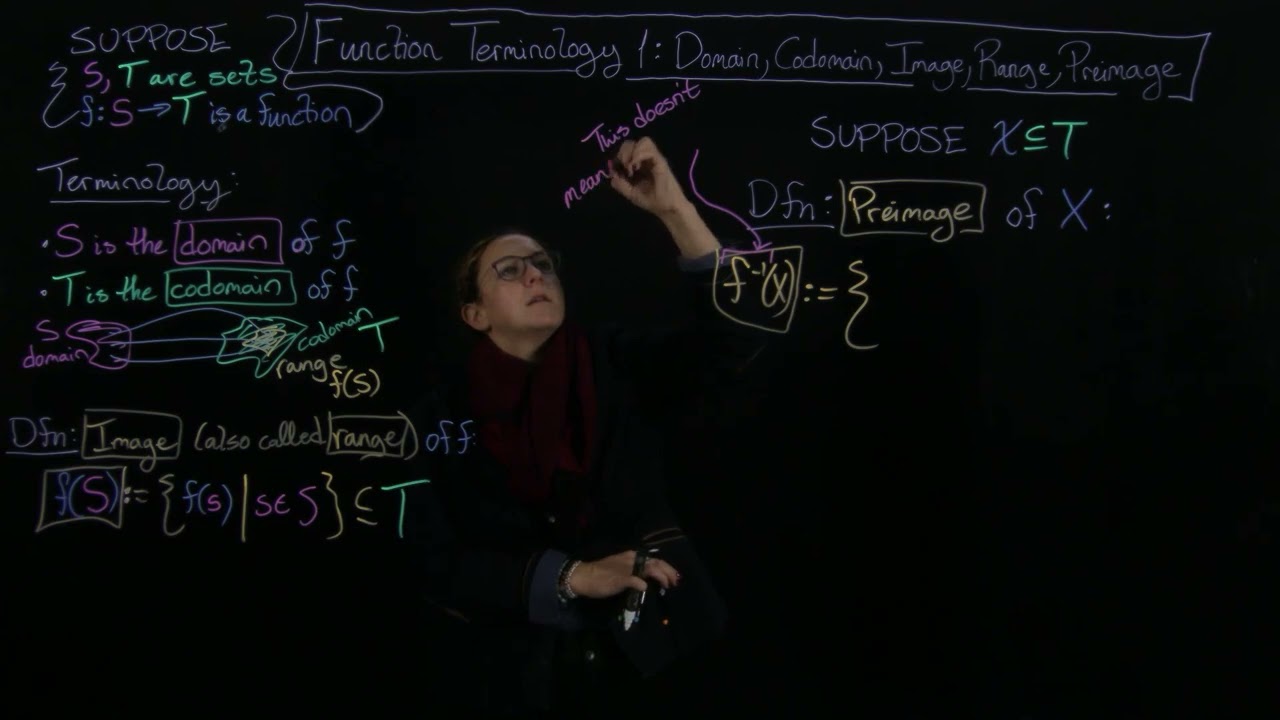 SUPPOSE
S, T are sets
f: S → T is a function
Function Terminology 1: Domain, Codomain, Image, Range, Preimage
Terminology:
• S is the domain of f
• T is the codomain of f
S
domain
codomain T
range
f(S)
Dfn: Image (also called range) of f:
f(S) := {f(s) | s ∈ S} ⊆ T
This doesn't
mean
SUPPOSE X ⊆ T
Dfn: Preimage of X:
f⁻¹(X) := {